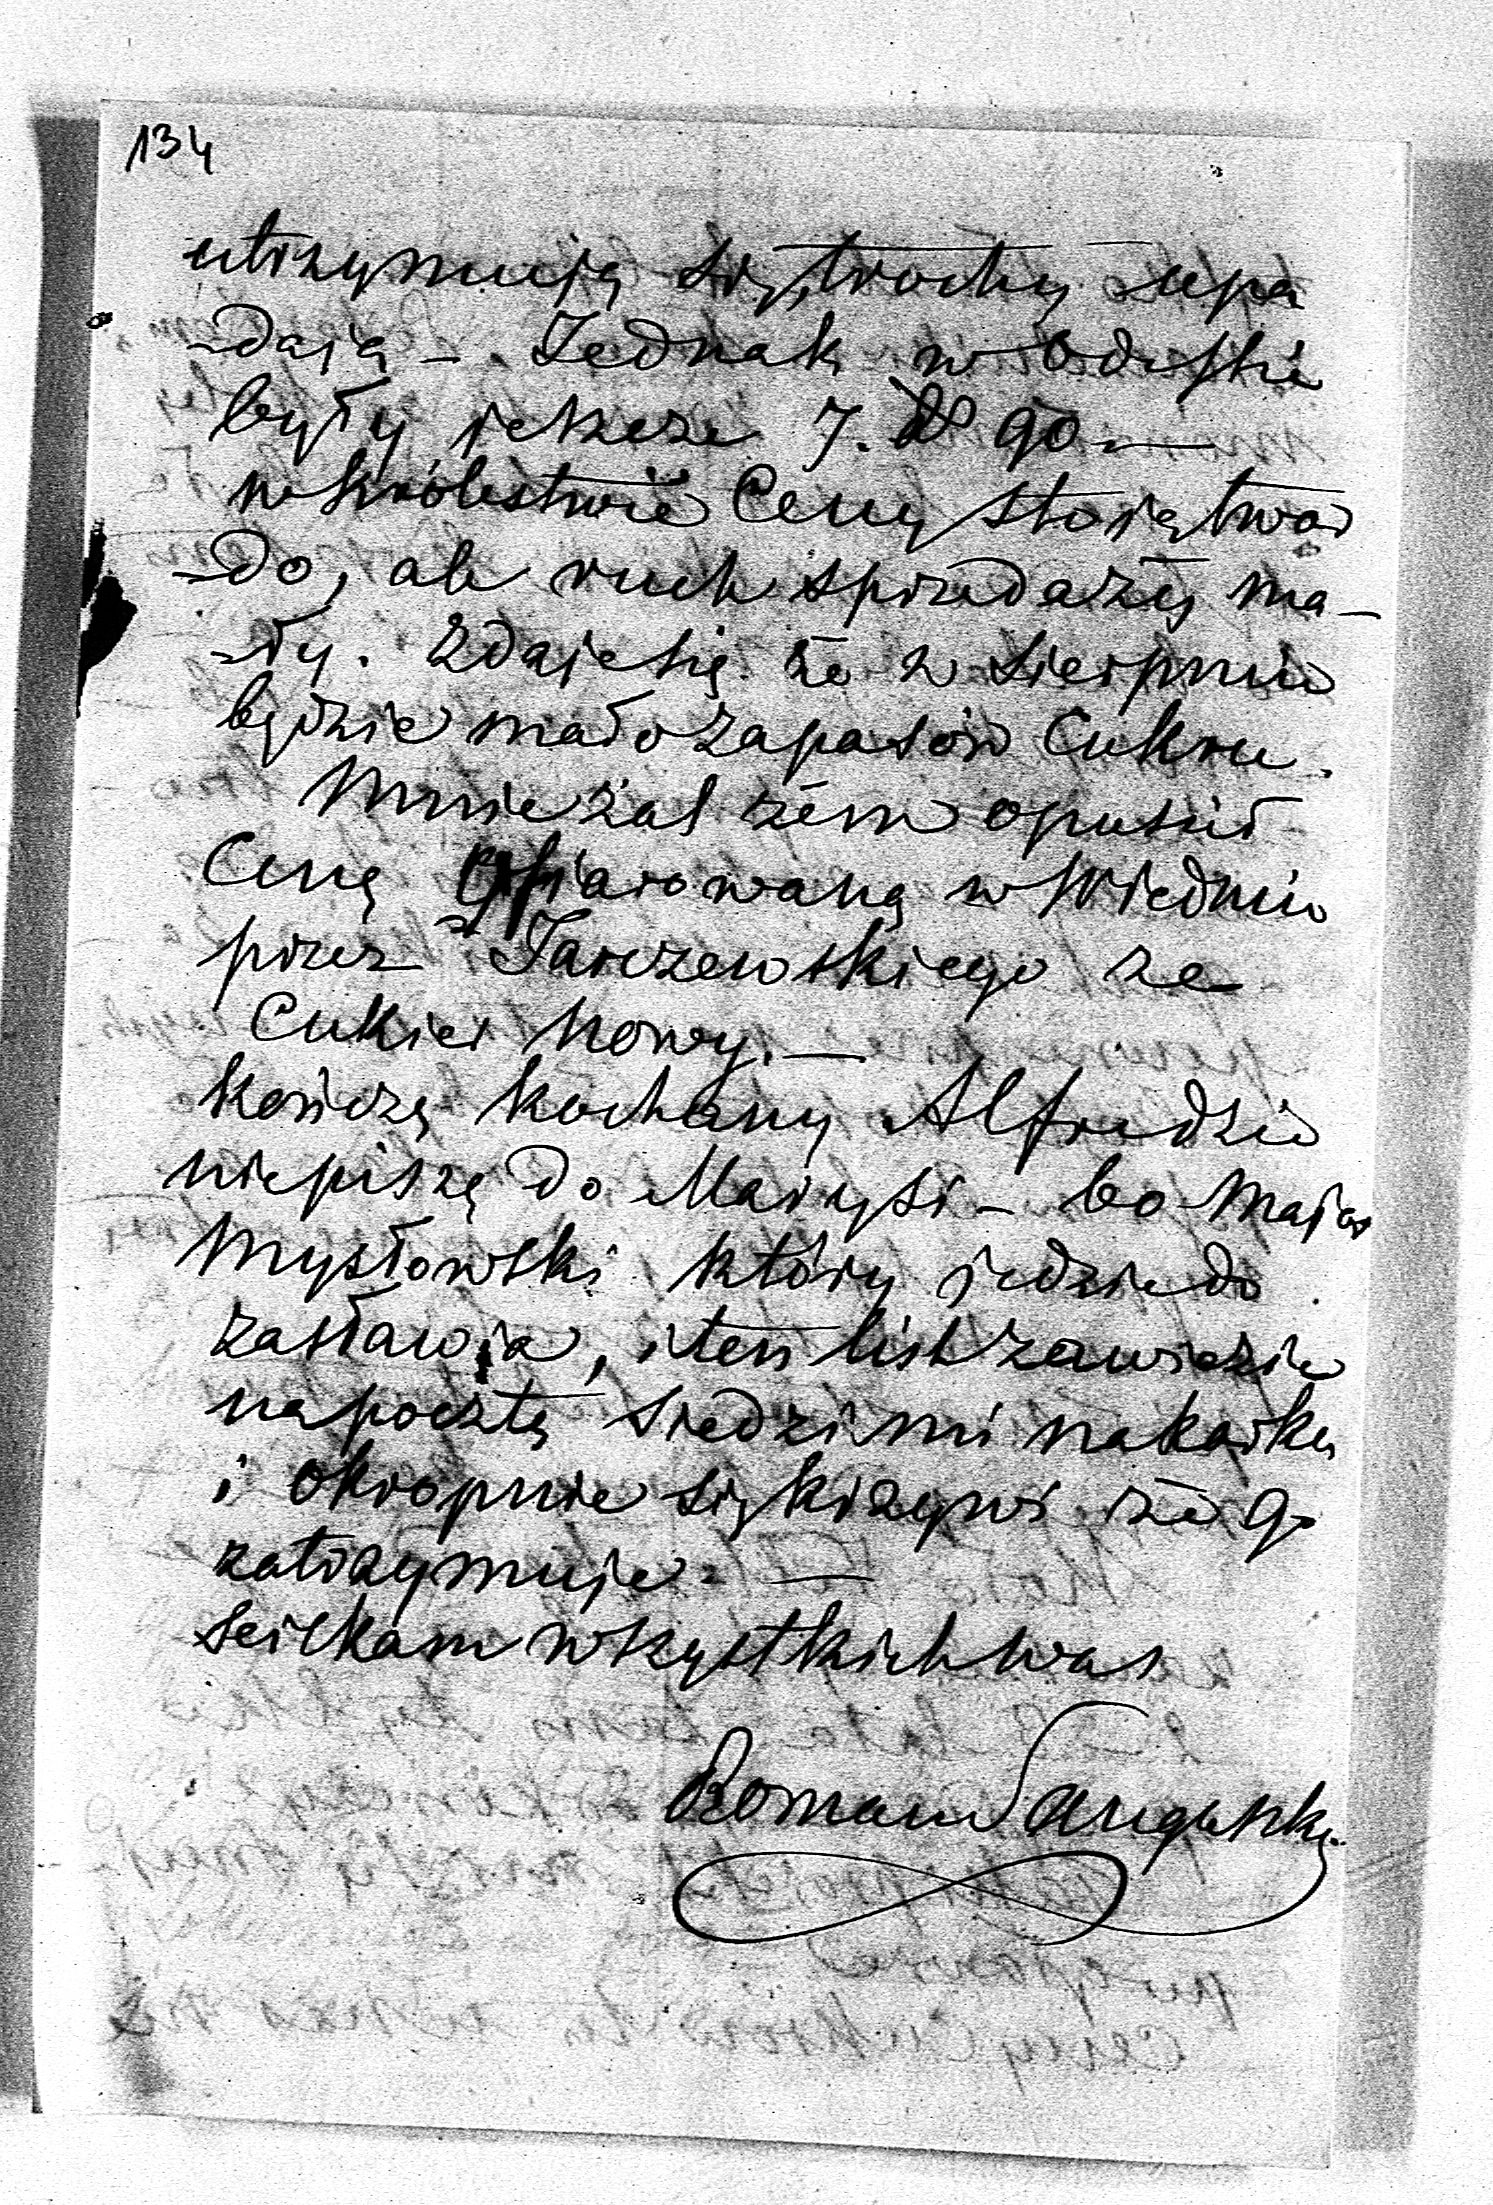 134
utrzymują się, trochę upa
-dają - Jednak w Odessie
były jeszcze 7. 90 -
w Królestwie Ceny stoją twar
-do, ale ruch sprzedaży ma-
-ły. Zdaje się że w Sierpniu
będzie mało zapasów Cukru.
Mnie żal żem opuścił
Cenę ofiarowaną w Wiedniu
przez Jarczewskiego za
Cukier Nowy. -
Kończę kochany Alfredzie
niepiszę do Marysi - bo Major
Mysłowski który jedzie do
Zasławia, i ten list zawiezie
na pocztę siedzi mi na karku
i okropnie się krzywi że go
zatrzymuje. -
Sciskam wszystkich was
Roman Sanguszko